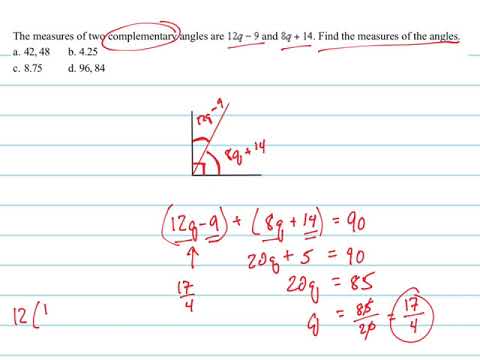 The measures of two complementary angles are 12q − 9 and 8q + 14. Find the measures of the angles.
a. 42, 48 b. 4.25
c. 8.75 d. 96, 84
12q-9
8q+14
(12q-9) + (8q+14) = 90
20q + 5 = 90
17/4
20q = 85
q = 85/20 = 17/4
12(1